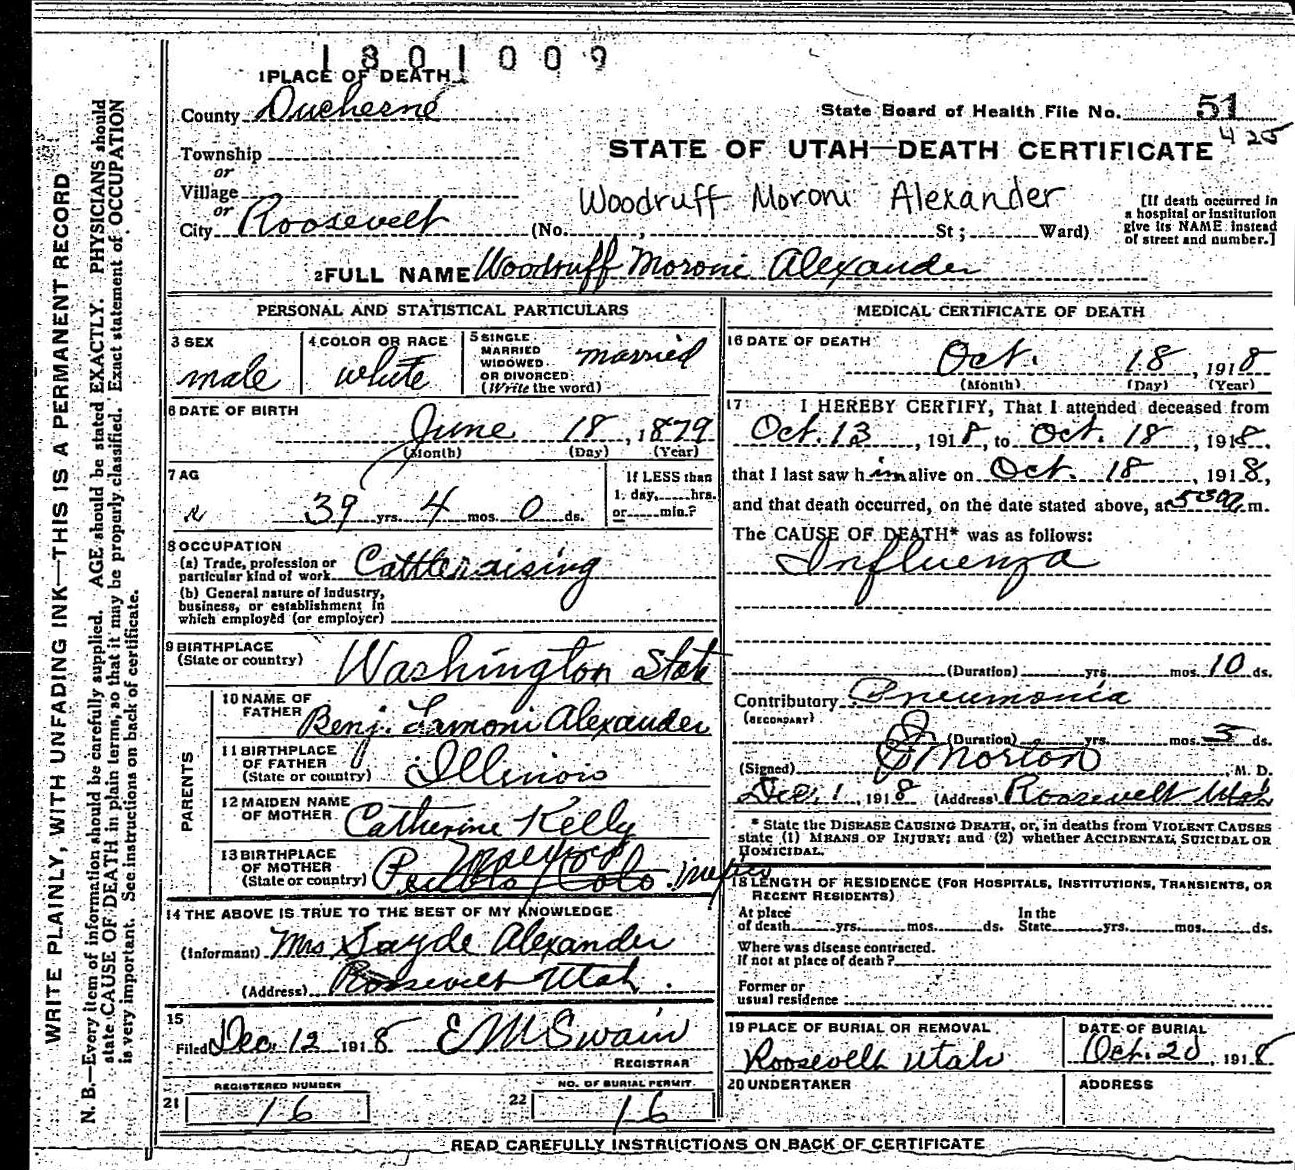 1801009
1 PLACE OF DEATH
County Duchesne
State Board of Health File No. 51
425
Township
or
Village
or
City Roosevelt
STATE OF UTAH—DEATH CERTIFICATE
Woodruff Moroni Alexander
(No. , St ; Ward)
[If death occurred in
a hospital or institution
give its NAME instead
of street and number.]
2 FULL NAME Woodruff Moroni Alexander
PERSONAL AND STATISTICAL PARTICULARS
3 SEX
male
4 COLOR OR RACE
white
5 SINGLE
MARRIED
WIDOWED
OR DIVORCED
(Write the word)
married
6 DATE OF BIRTH
June 18, 1879
(Month) (Day) (Year)
7 AG
39 yrs. 4 mos. 0 ds.
If LESS than
1 day, hrs.
or min.?
8 OCCUPATION
(a) Trade, profession or
particular kind of work Cattleraising
(b) General nature of industry,
business, or establishment in
which employed (or employer)
9 BIRTHPLACE
(State or country) Washington State
PARENTS
10 NAME OF
FATHER Benj. Lamoni Alexander
11 BIRTHPLACE
OF FATHER
(State or country) Illinois
12 MAIDEN NAME
OF MOTHER Catherine Kelly
13 BIRTHPLACE
OF MOTHER
(State or country) Pueblo Colo.
14 THE ABOVE IS TRUE TO THE BEST OF MY KNOWLEDGE
(Informant) Mrs Sayde Alexander
(Address) Roosevelt Utah.
15
Filed Dec. 12 1918 E M Swain
REGISTRAR
REGISTERED NUMBER
21 16
NO. OF BURIAL PERMIT
22 16
MEDICAL CERTIFICATE OF DEATH
16 DATE OF DEATH
Oct. 18, 1918
(Month) (Day) (Year)
17 I HEREBY CERTIFY, That I attended deceased from
Oct. 13, 1918, to Oct. 18, 1918.
that I last saw him alive on Oct. 18, 1918,
and that death occurred, on the date stated above, at m.
The CAUSE OF DEATH* was as follows:
Influenza
(Duration) yrs. mos. 10 ds.
Contributory Pneumonia
(SECONDARY)
(Duration) yrs. mos. 5 ds.
(Signed) Morton, M. D.
Dec. 1, 1918 (Address) Roosevelt Utah
* State the DISEASE CAUSING DEATH, or, in deaths from VIOLENT CAUSES
state (1) MEANS OF INJURY; and (2) whether ACCIDENTAL, SUICIDAL OR
HOMICIDAL.
18 LENGTH OF RESIDENCE (FOR HOSPITALS, INSTITUTIONS, TRANSIENTS, OR
RECENT RESIDENTS)
At place
of death yrs. mos. ds.
In the
State yrs. mos. ds.
Where was disease contracted.
if not at place of death?
Former or
usual residence
19 PLACE OF BURIAL OR REMOVAL
Roosevelt Utah
DATE OF BURIAL
Oct. 20, 1918
20 UNDERTAKER
ADDRESS
READ CAREFULLY INSTRUCTIONS ON BACK OF CERTIFICATE
WRITE PLAINLY, WITH UNFADING INK—THIS IS A PERMANENT RECORD
N. B.—Every item of information should be carefully supplied. AGE should be stated EXACTLY. PHYSICIANS should
state CAUSE OF DEATH in plain terms, so that it may be properly classified. Exact statement of OCCUPATION
is very important. See instructions on back of certificate.